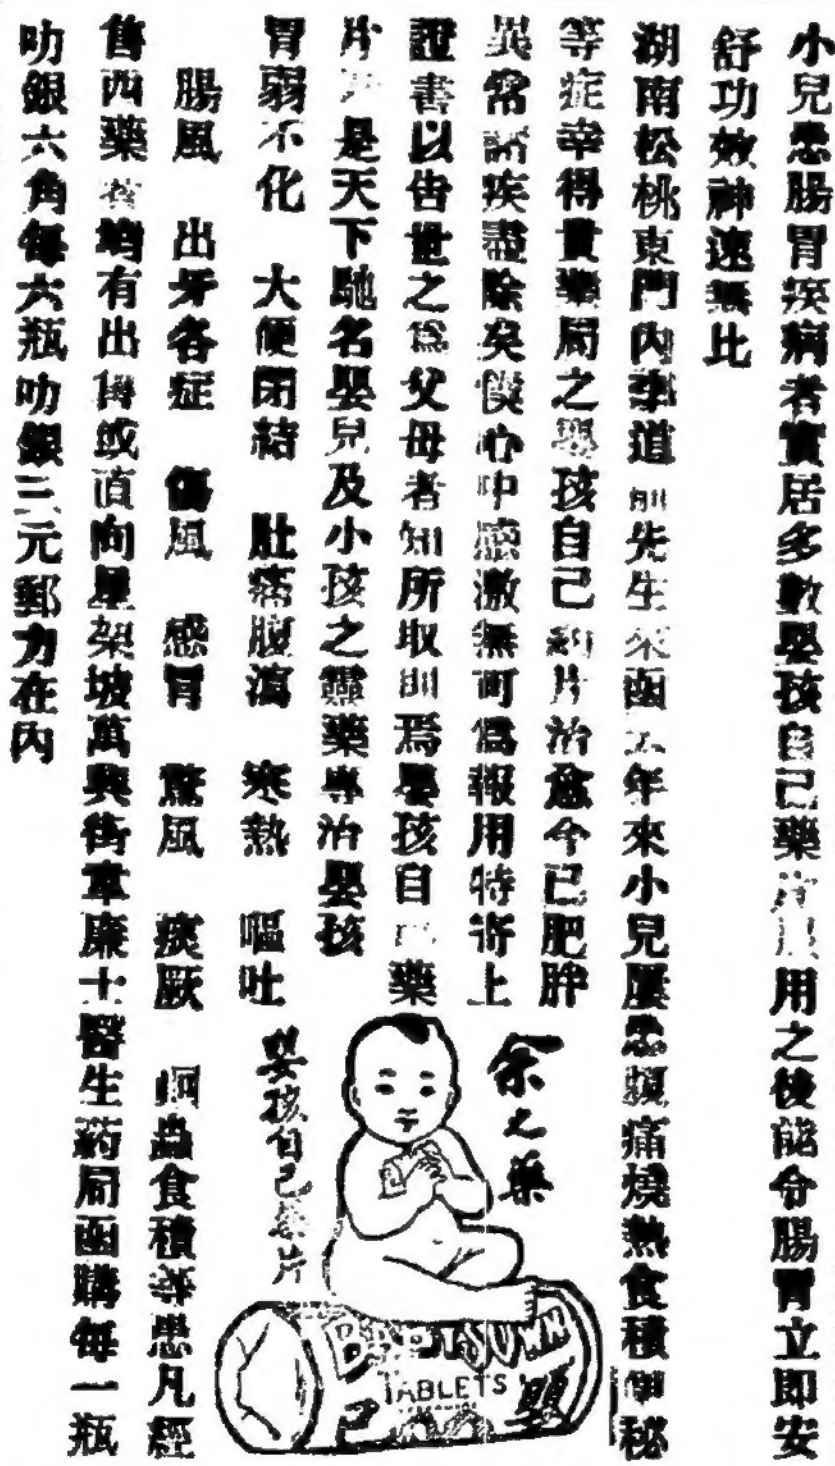 小兒患腸胃疾病者實居多數嬰孩自己藥片服用之後能令腸胃立即安
舒功效神速無比
湖南松桃東門內李道 先生來函 年來小兒屢患腹痛燒熱食積便秘
等症幸得貴藥局之嬰孩自己藥片治愈今已肥胖
異常諸疾盡除矣 心中感激無可爲報用特寄上
證書以告世之爲父母者知所取 焉嬰孩自己藥
片 是天下馳名嬰兒及小孩之靈藥專治嬰孩
胃弱不化 大便閉結 肚痛腹瀉 寒熱 嘔吐
腸風 出牙各症 傷風 感冒 驚風 痰厥 蟲食積等患凡經
售西藥者均有出售或直向星架坡萬興街韋廉士醫生藥局函購每一瓶
叻銀六角每六瓶叻銀三元郵力在內
余之藥
嬰孩自己藥片
BABY'S OWN
TABLETS
己